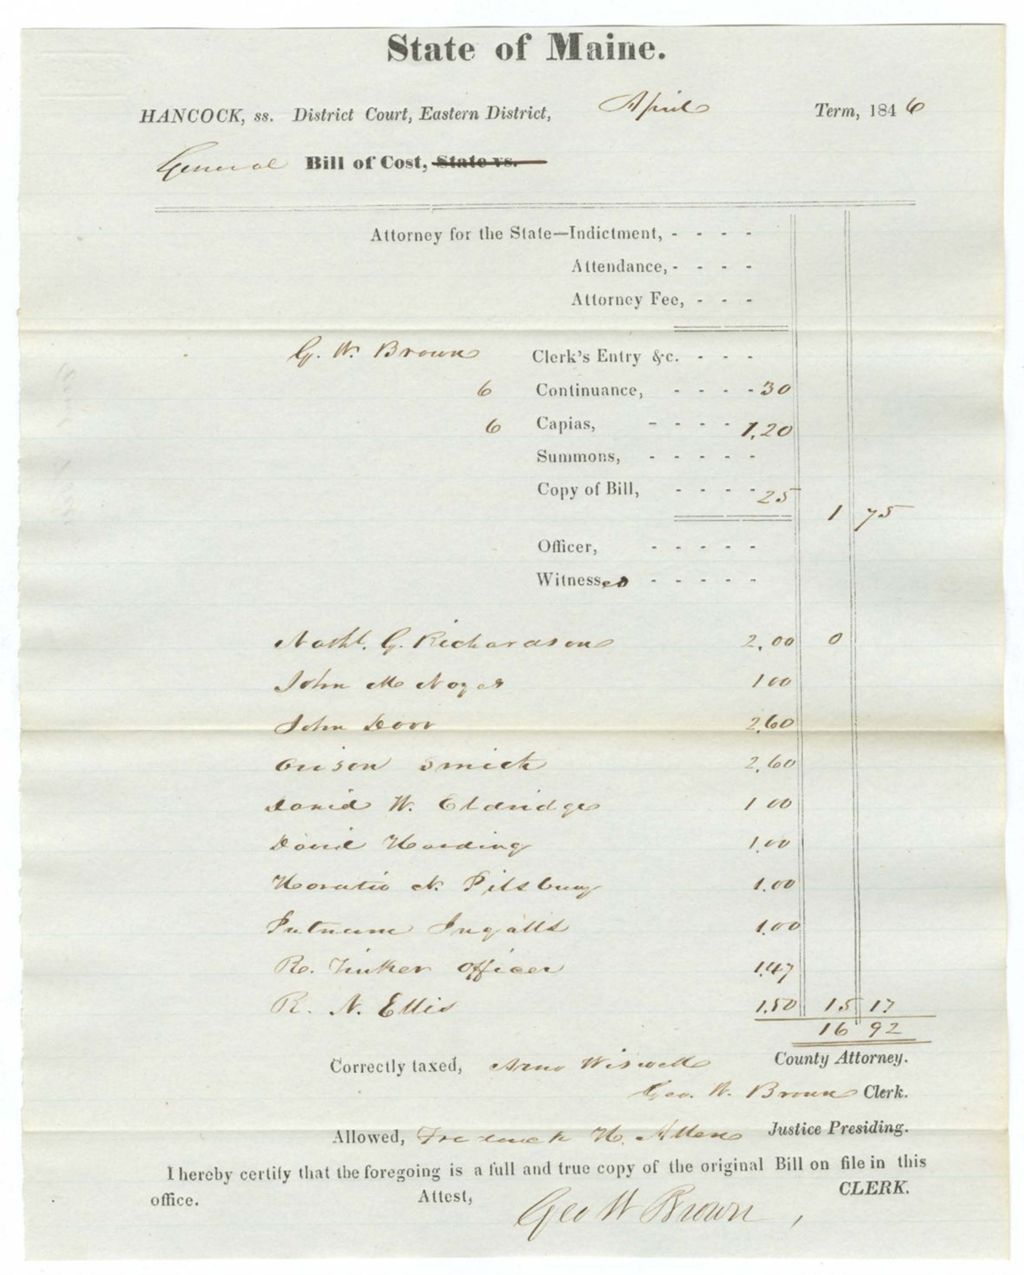 State of Maine.
HANCOCK, ss. District Court, Eastern District, April Term, 1846
General Bill of Cost, State vs.
Attorney for the State—Indictment, - - - -
Attendance, - - - -
Attorney Fee, - - -
G. W. Brown Clerk's Entry &c. - - -
6 Continuance, - - - - 30
6 Capias, - - - - 1,20
Summons, - - - - -
Copy of Bill, - - - - 25
1 75
Officer, - - - - -
Witnesses - - - - -
Nathl. G. Richardson 2,00 0
John M Noyes 1 00
John Door 2,60
Orison Smith 2,60
David W. Eldridge 1 00
David Harding 1,00
Horatio N. Pilsbury 1,00
Putnam Ingalls 1,00
R. Tinker Officer 1,47
R. N. Ellis 1,50 15 17
16 92
Correctly taxed, Arno Wiswell County Attorney.
Geo. W. Brown Clerk.
Allowed, Frederick H. Allen Justice Presiding.
I hereby certify that the foregoing is a full and true copy of the original Bill on file in this
office. Attest, CLERK.
Geo W Brown,